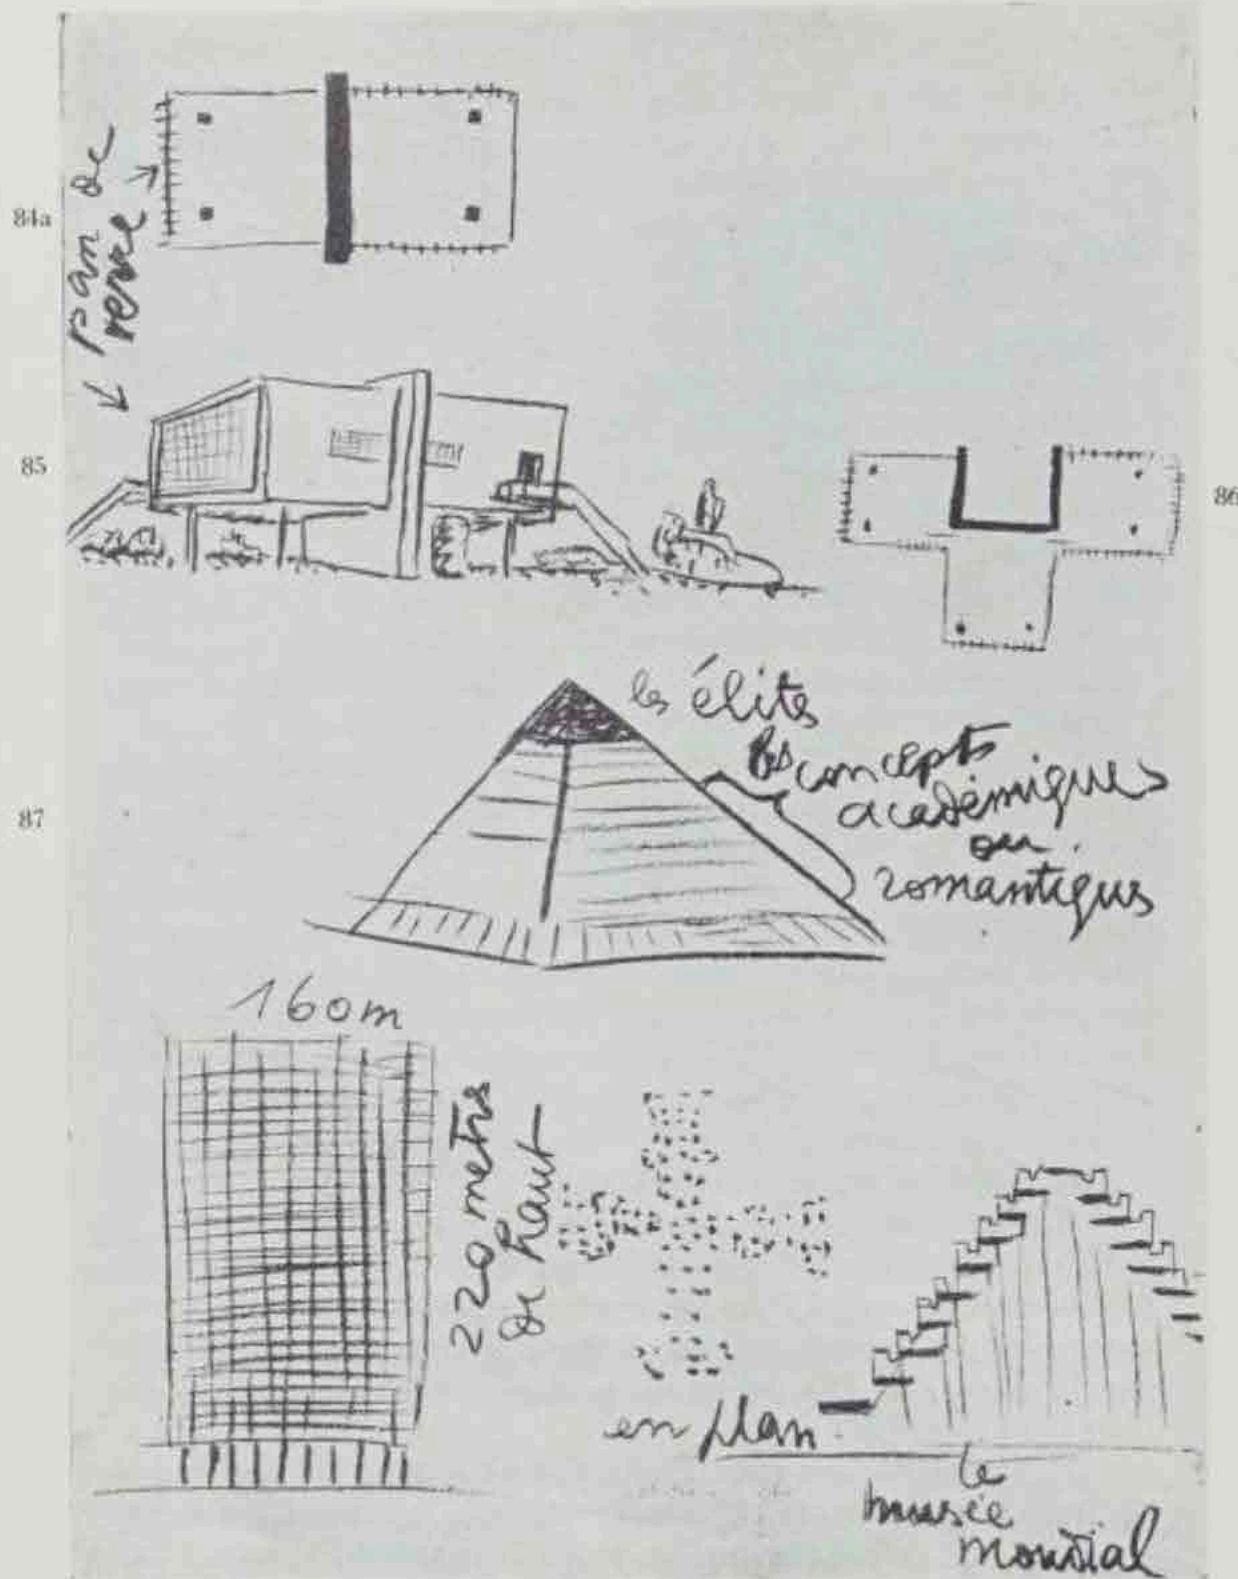 84a
pan de
verre
85
86
les élites
les concepts
académiques
ou
romantiques
87
160m
220 metres
de haut
en plan
le
musée
mondial